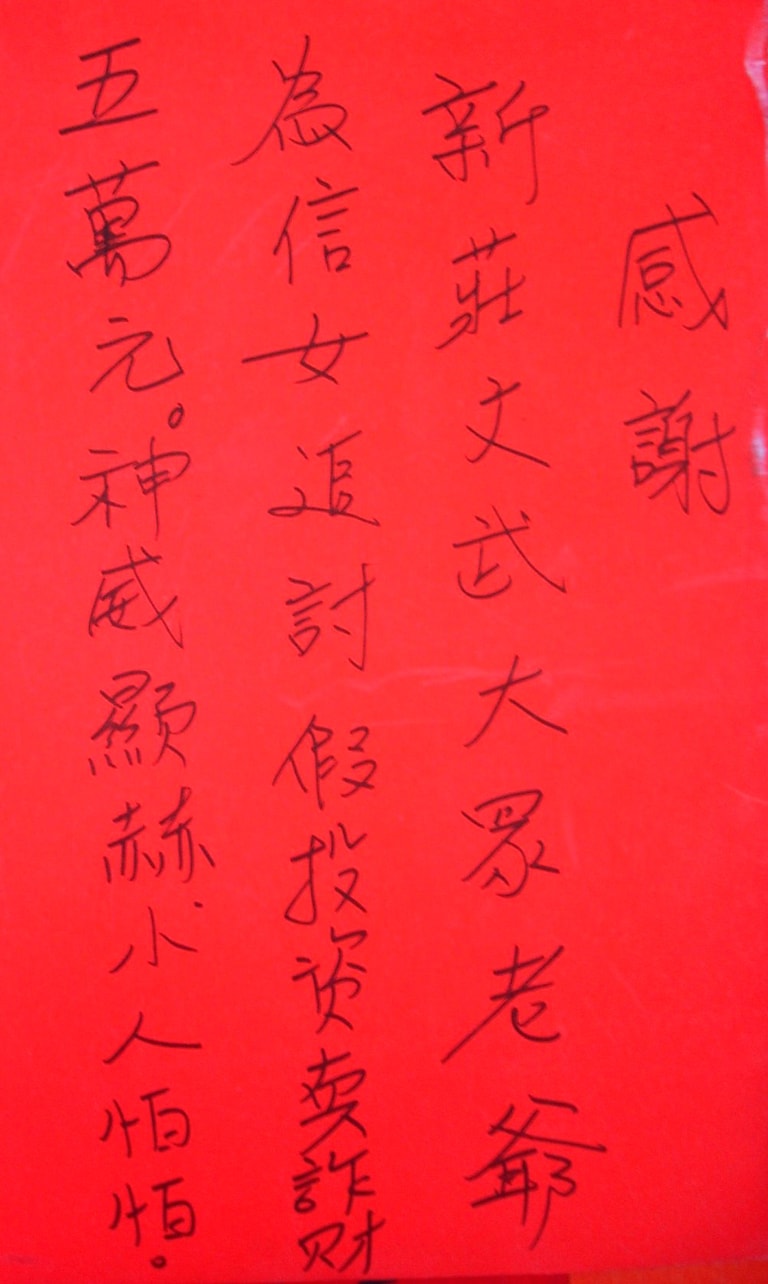 感謝
新莊文武大眾老爺
為信女追討假投資真詐財
五萬元。神威顯赫小人怕怕。